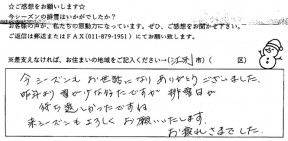 ☆ご感想をお願いします☆
今シーズンの排雪はいかがでしたか?
お客様の声が、私たちの原動力になっています。ぜひ、ご感想をお聞かせ下さい。
ご返信は郵送またはFAX(011-879-1951)にてお願い致します。
※差支えなければ、お住まいの地域をご記入ください→(江別市)( 区)
今シーズンもお世話になりありがとうございました。
昨年より雪が少な目でしたが 排雪日が
待ち遠しかったですね
来シーズンもよろしくお願いいたします。
お疲れさまでした。